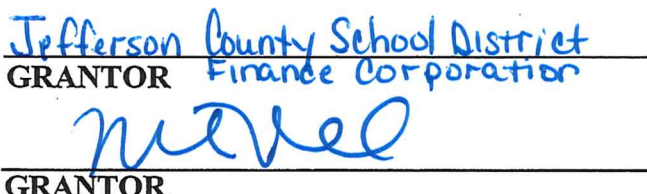 Jefferson County School District
GRANTOR Finance Corporation
GRANTOR